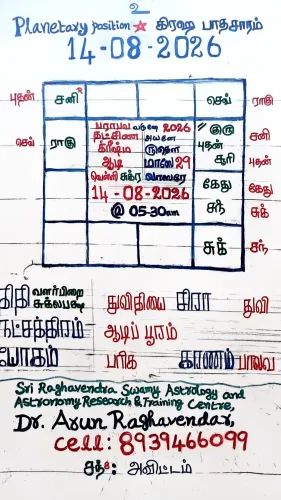 உ
Planetary position ★ கிரஹ பாதசாரம்
14-08-2026
புதன் சனி செவ் ராகு
செவ் ராகு
பராபவ வருஷ 2026
தட்சிண அயனே
க்ரீஷ்ம ருதௌ
ஆடி மாஸே 29
வெள்ளி சுக்ர வாஸரே
14-08-2026
@ 05-30am
" குரு
புதன்
சூரி
சனி
புதன்
கேது
சந்
கேது
சுக்
சுக் சந்
திதி வளர்பிறை சுக்லபக்ஷ துவிதியை சிரா துவி
நட்சத்திரம் ஆடிப் பூரம்
யோகம் பரிக காணம் பாலவ
Sri Raghavendra Swamy Astrology and
Astronomy Research & Training Centre,
Dr. Arun Raghavendar,
cell: 8939466099
சந்: அவிட்டம்